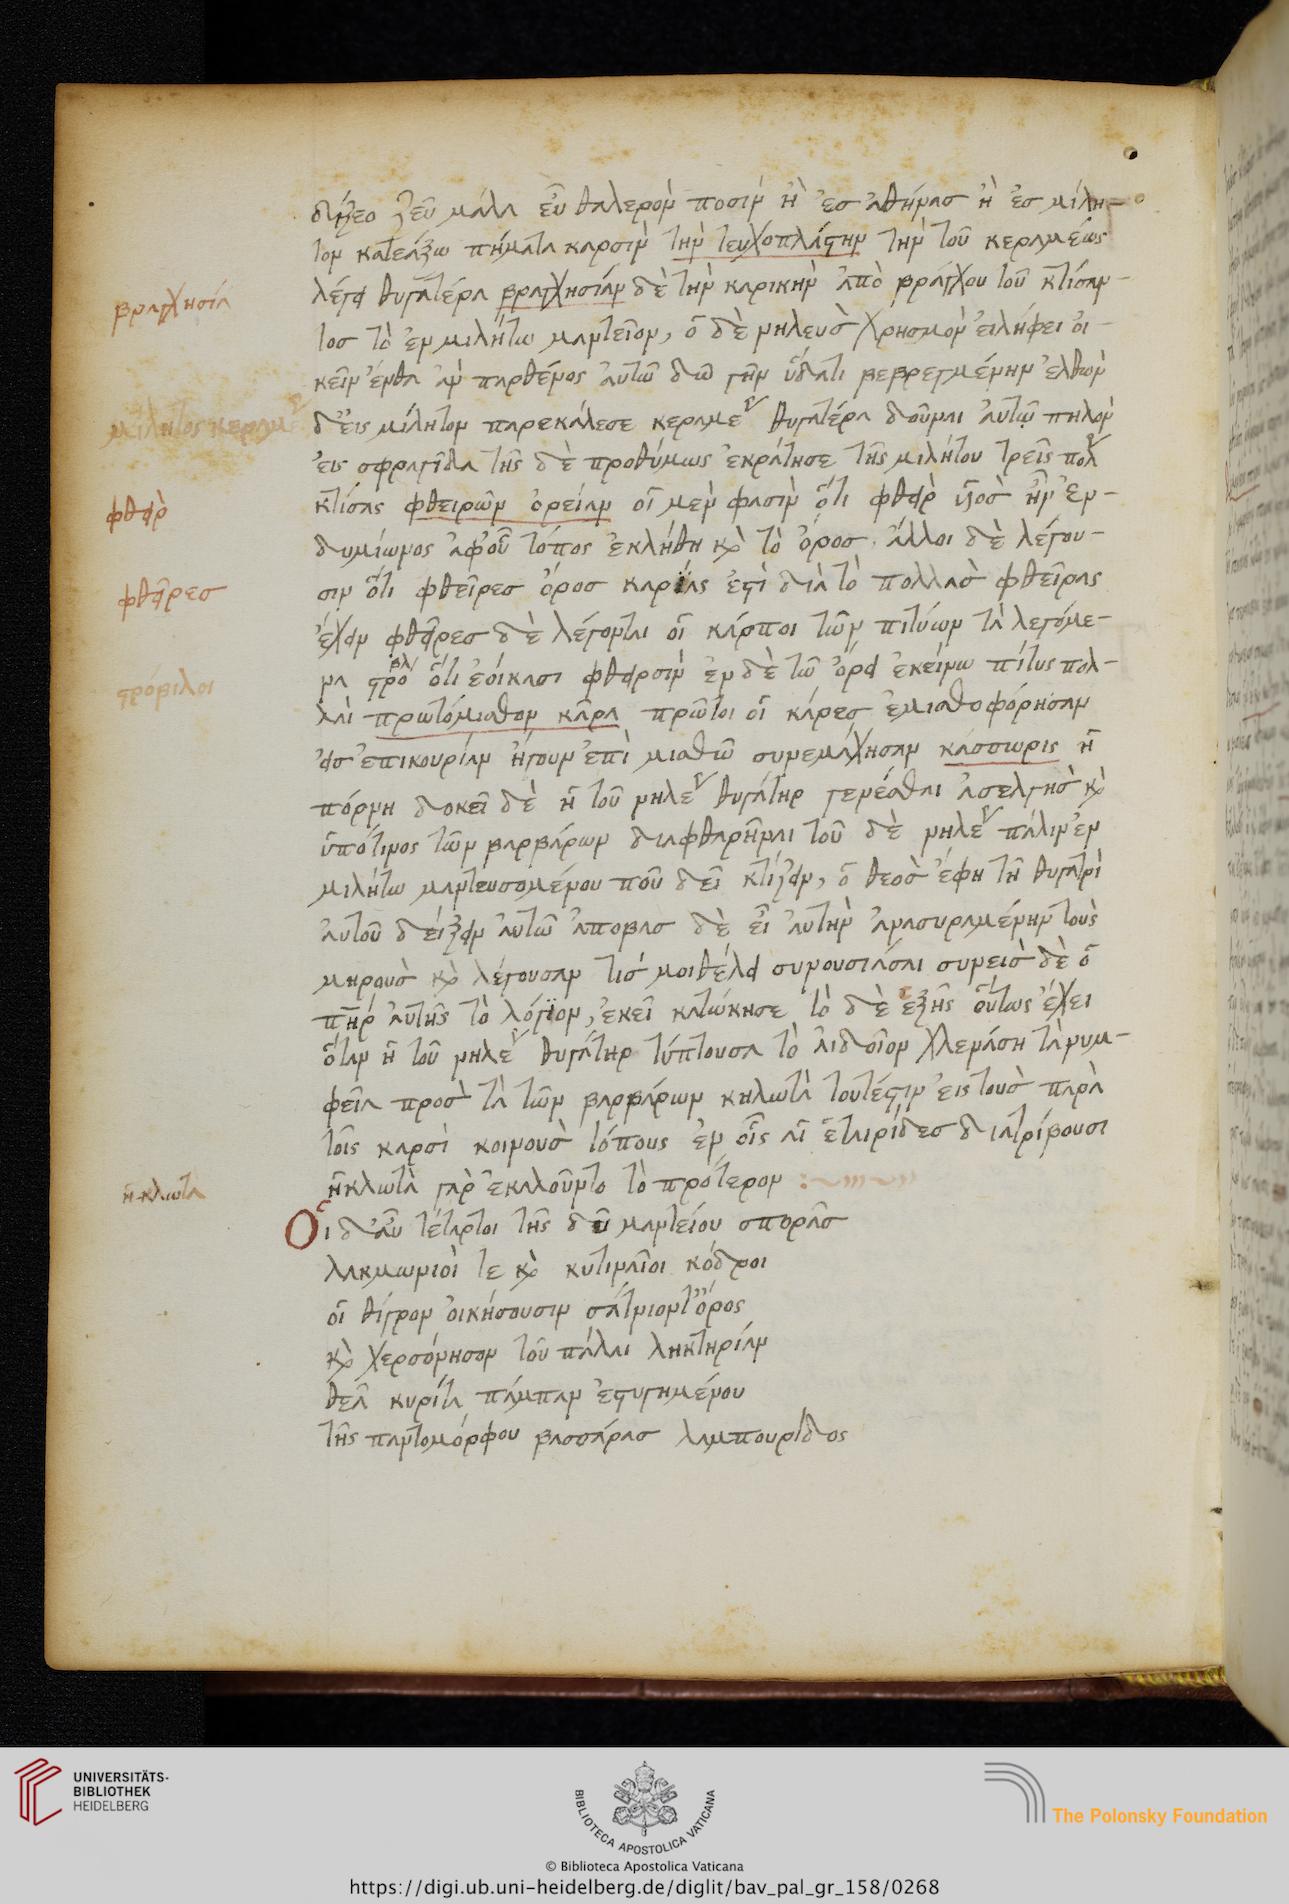 δίζεο σεῦ μάλα εὖ θαλερὸν ποσὶν ἢ ἐσ ἀθήνασ ἢ ἐσ μίλη-
τον κατεάξω πήματα καρσὶν τὴν τευχοπλάστην τὴν τοῦ κεραμέως
λέγει θυγατέρα βραγχησίαν δὲ τὴν καρικὴν ἀπὸ βράγχου τοῦ κτίσαν-
τοσ τὸ ἐν μιλήτω μαντεῖον, ὁ δὲ νηλεὺσ χρησμὸν εἰλήφει οἰ-
κεῖν ἔνθα ἂν παρθένος αὐτῶ δῶ γῆν ὕδατι βεβρεγμένην ἐλθὼν
δ' εἰς μίλητον παρεκάλεσε κεραμέ θυγατέρα δοῦναι αὐτῶ πηλὸν
εἰς σφραγῖδα τῆς δὲ προθύμως ἐκράτησε τῆς μιλήτου τρεῖς πολ
κτίσας φθειρῶν ὀρείαν οἱ μὲν φασὶν ὅτι φθεὶρ υἱὸσ ἦν ἐν-
δυμίωνος ἀφ' οὗ τόπος ἐκλήθη κὲ τὸ ὄροσ. ἄλλοι δὲ λέγου-
σιν ὅτι φθεῖρεσ ὄροσ καρίας ἐστὶ διὰ τὸ πολλὰσ φθεῖρας
ἔχειν φθεῖρεσ δὲ λέγονται οἱ κάρποι τῶν πιτύων τὰ λεγόμε-
να στρόβλ ὅτι ἐοίκασι φθειρσὶν ἐν δὲ τῶ ὄρει ἐκείνω πίτυς πολ-
λαὶ πρωτόμισθον κᾶρα πρῶτοι οἱ κάρεσ ἐμισθοφόρησαν
εἰσ ἐπικουρίαν ἤγουν ἐπὶ μισθῶ συνεμάχησαν κάσσωρις ἡ
πόρνη δοκεῖ δὲ ἡ τοῦ νηλέ θυγάτηρ γενέσθαι ἀσελγὴσ κὲ
ὑπότινος τῶν βαρβάρων διαφθαρῆναι τοῦ δὲ νηλέ πάλιν ἐν
μιλήτω μαντευσομένου ποῦ δεῖ κτίζειν, ὁ θεὸσ ἔφη τῆ θυγατρὶ
αὐτοῦ δείξειν αὐτῶ ἀποβασ δὲ εἶ αὐτὴν ἀνασυραμένην τοὺς
μηροὺσ κὲ λέγουσαν τίσ μοι θέλει συνουσιάσαι συνεισ δὲ ὁ
πηρ αὐτῆς τὸ λόγιον, ἐκεῖ κατώκησε τὸ δὲ ἑξῆς οὕτως ἔχει
ὅταν ἡ τοῦ νηλέ θυγάτηρ τύπτουσα τὸ αἰδοῖον χλευάση τὰ νυμ-
φεῖα προσ τὰ τῶν βαρβάρων κηλωτὰ τουτέστιν εἰς τοὺσ παρὰ
τοῖς καρσὶ κοινοὺσ τόπους ἐν οἷς αἱ ἑταιρίδεσ διατρίβουσι
ἡκλωτὰ γὰρ ἐκαλοῦντο τὸ πρότερον
Οἱ δ' αὖ τέταρτοι τῆς δυμαντείου σπορᾶσ
λακμωνιοὶ τε κὲ κυτιναῖοι κόδροι
οἱ θίγρον οἰκήσουσιν σάτνιον τ' ὄρος
κὲ χερσόνησον τοῦ πάλαι ληκτηρίαν
θεᾶ κυρίτα πάμπαν ἐστυγημένου
τῆς παντομόρφου βασσάρασ λαμπουρίδος
βραγχησία
μιλητος κεραμέ
φθεὶρ
φθεῖρεσ
στρόβιλοι
ἡκλωτα
UNIVERSITÄTS-
BIBLIOTHEK
HEIDELBERG
BIBLIOTECA APOSTOLICA VATICANA
The Polonsky Foundation
© Biblioteca Apostolica Vaticana
https://digi.ub.uni-heidelberg.de/diglit/bav_pal_gr_158/0268